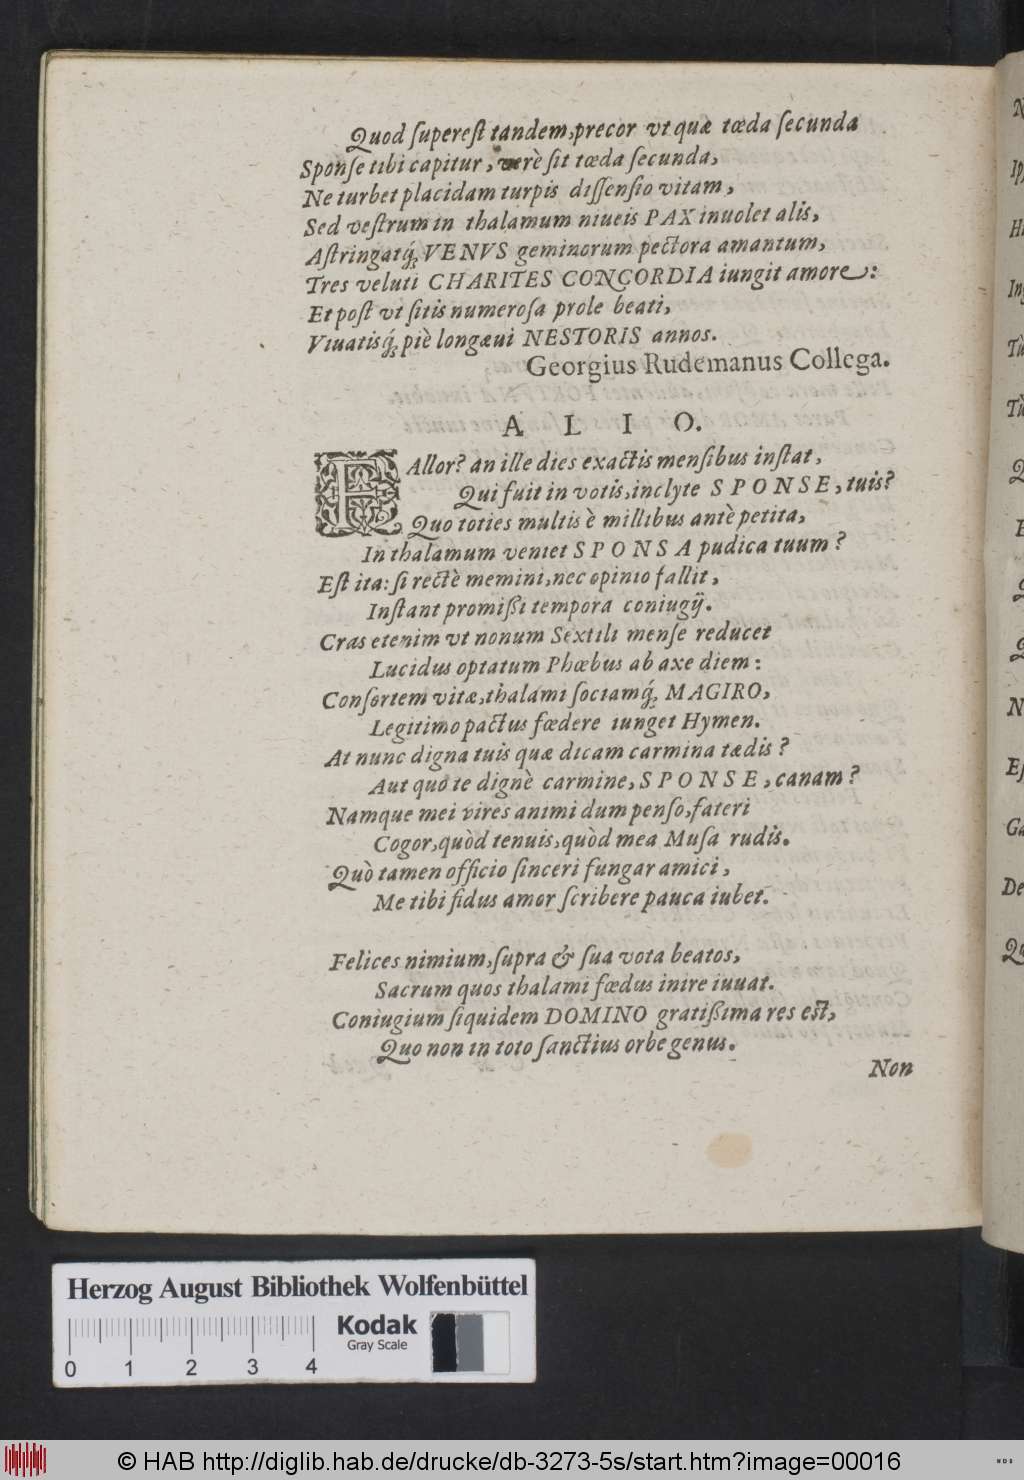 Quod ſupereſt tandem, precor vt quæ tœda ſecunda
Sponſe tibi capitur, verè ſit tœda ſecunda,
Ne turbet placidam turpis diſſenſio vitam,
Sed veſtrum in thalamum niueis PAX inuolet alis,
Aſtringatq́; VENVS geminorum pectora amantum,
Tres veluti CHARITES CONCORDIA iungit amore:
Et poſt vt ſitis numeroſa prole beati,
Viuatisq́; piè longæui NESTORIS annos.
Georgius Rudemanus Collega.
A L I O.
FAllor? an ille dies exactis menſibus inſtat,
Qui fuit in votis, inclyte SPONSE, tuis?
Quo toties multis è millibus antè petita,
In thalamum veniet SPONSA pudica tuum?
Eſt ita: ſi rectè memini, nec opinio fallit,
Inſtant promißi tempora coniugij.
Cras etenim vt nonum Sextili menſe reducet
Lucidus optatum Phœbus ab axe diem:
Conſortem vitæ, thalami ſociamq́; MAGIRO,
Legitimo pactus fœdere iunget Hymen.
At nunc digna tuis quæ dicam carmina tædis?
Aut quo te dignè carmine, SPONSE, canam?
Namque mei vires animi dum penſo, fateri
Cogor, quòd tenuis, quòd mea Muſa rudis.
Quò tamen officio ſinceri fungar amici,
Me tibi fidus amor ſcribere pauca iubet.
Felices nimium, ſupra & ſua vota beatos,
Sacrum quos thalami fœdus inire iuuat.
Coniugium ſiquidem DOMINO gratißima res eſt,
Quo non in toto ſanctius orbe genus.
Non
Herzog August Bibliothek Wolfenbüttel
Kodak
Gray Scale
0 1 2 3 4
© HAB http://diglib.hab.de/drucke/db-3273-5s/start.htm?image=00016